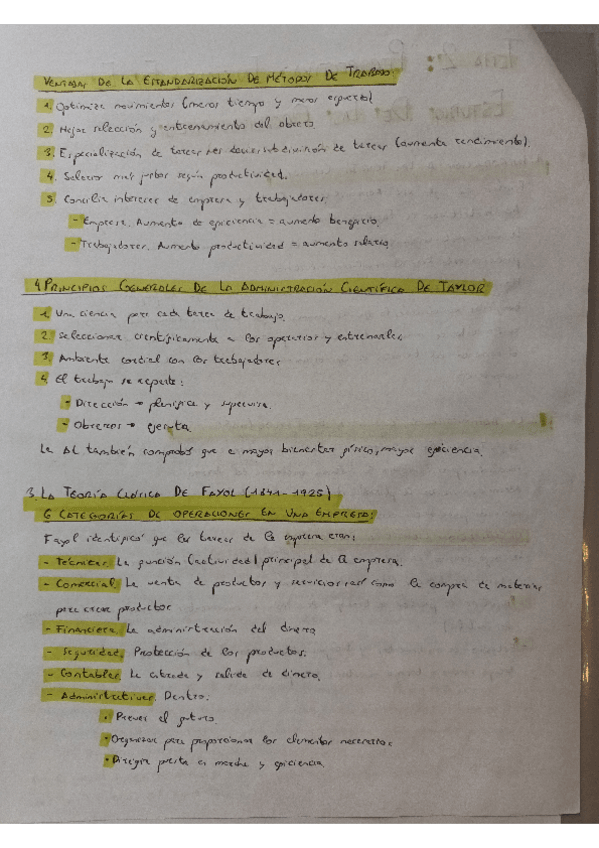 VENTAJAS DE LA ESTANDARIZACIÓN DE MÉTODOS DE TRABAJO:
1. Optimizar movimientos (menos tiempo y menos esfuerzo)
2. Mejor selección y entrenamiento del obrero
3. Especialización de tareas subdivisión de tareas (aumenta rendimiento).
4. Salarios más justos según productividad.
5. Concilia intereses de empresa y trabajadores
- Empresa. Aumento de eficiencia = aumento beneficio.
- Trabajadores. Aumento productividad = aumento salario.
4 PRINCIPIOS GENERALES DE LA ADMINISTRACIÓN CIENTÍFICA DE TAYLOR
1. Una ciencia para cada tarea de trabajo.
2. Seleccionar científicamente a los operarios y entrenarles
3. Ambiente cordial con los trabajadores
4. El trabajo se reparte:
- Dirección → planifica y supervisa.
- Obreros → ejecuta
La también comprobó que a mayor bienestar físico, mayor eficiencia.
3. LA TEORÍA CLÁSICA DE FAYOL (1841-1925)
6 CATEGORÍAS DE OPERACIONES EN UNA EMPRESA:
Fayol identificó que las tareas de la empresa eran:
- Técnicas. La función (actividad) principal de la empresa.
- Comercial. La venta de productos y servicios así como la compra de materias
para crear productos
- Financiera. La administración del dinero
- Seguridad. Protección de los productos.
- Contables. La entrada y salida de dinero.
- Administrativas. Dentro:
• Prever el futuro
• Organizar para proporcionar los elementos necesarios
• Dirigir puesta en marcha y eficiencia.